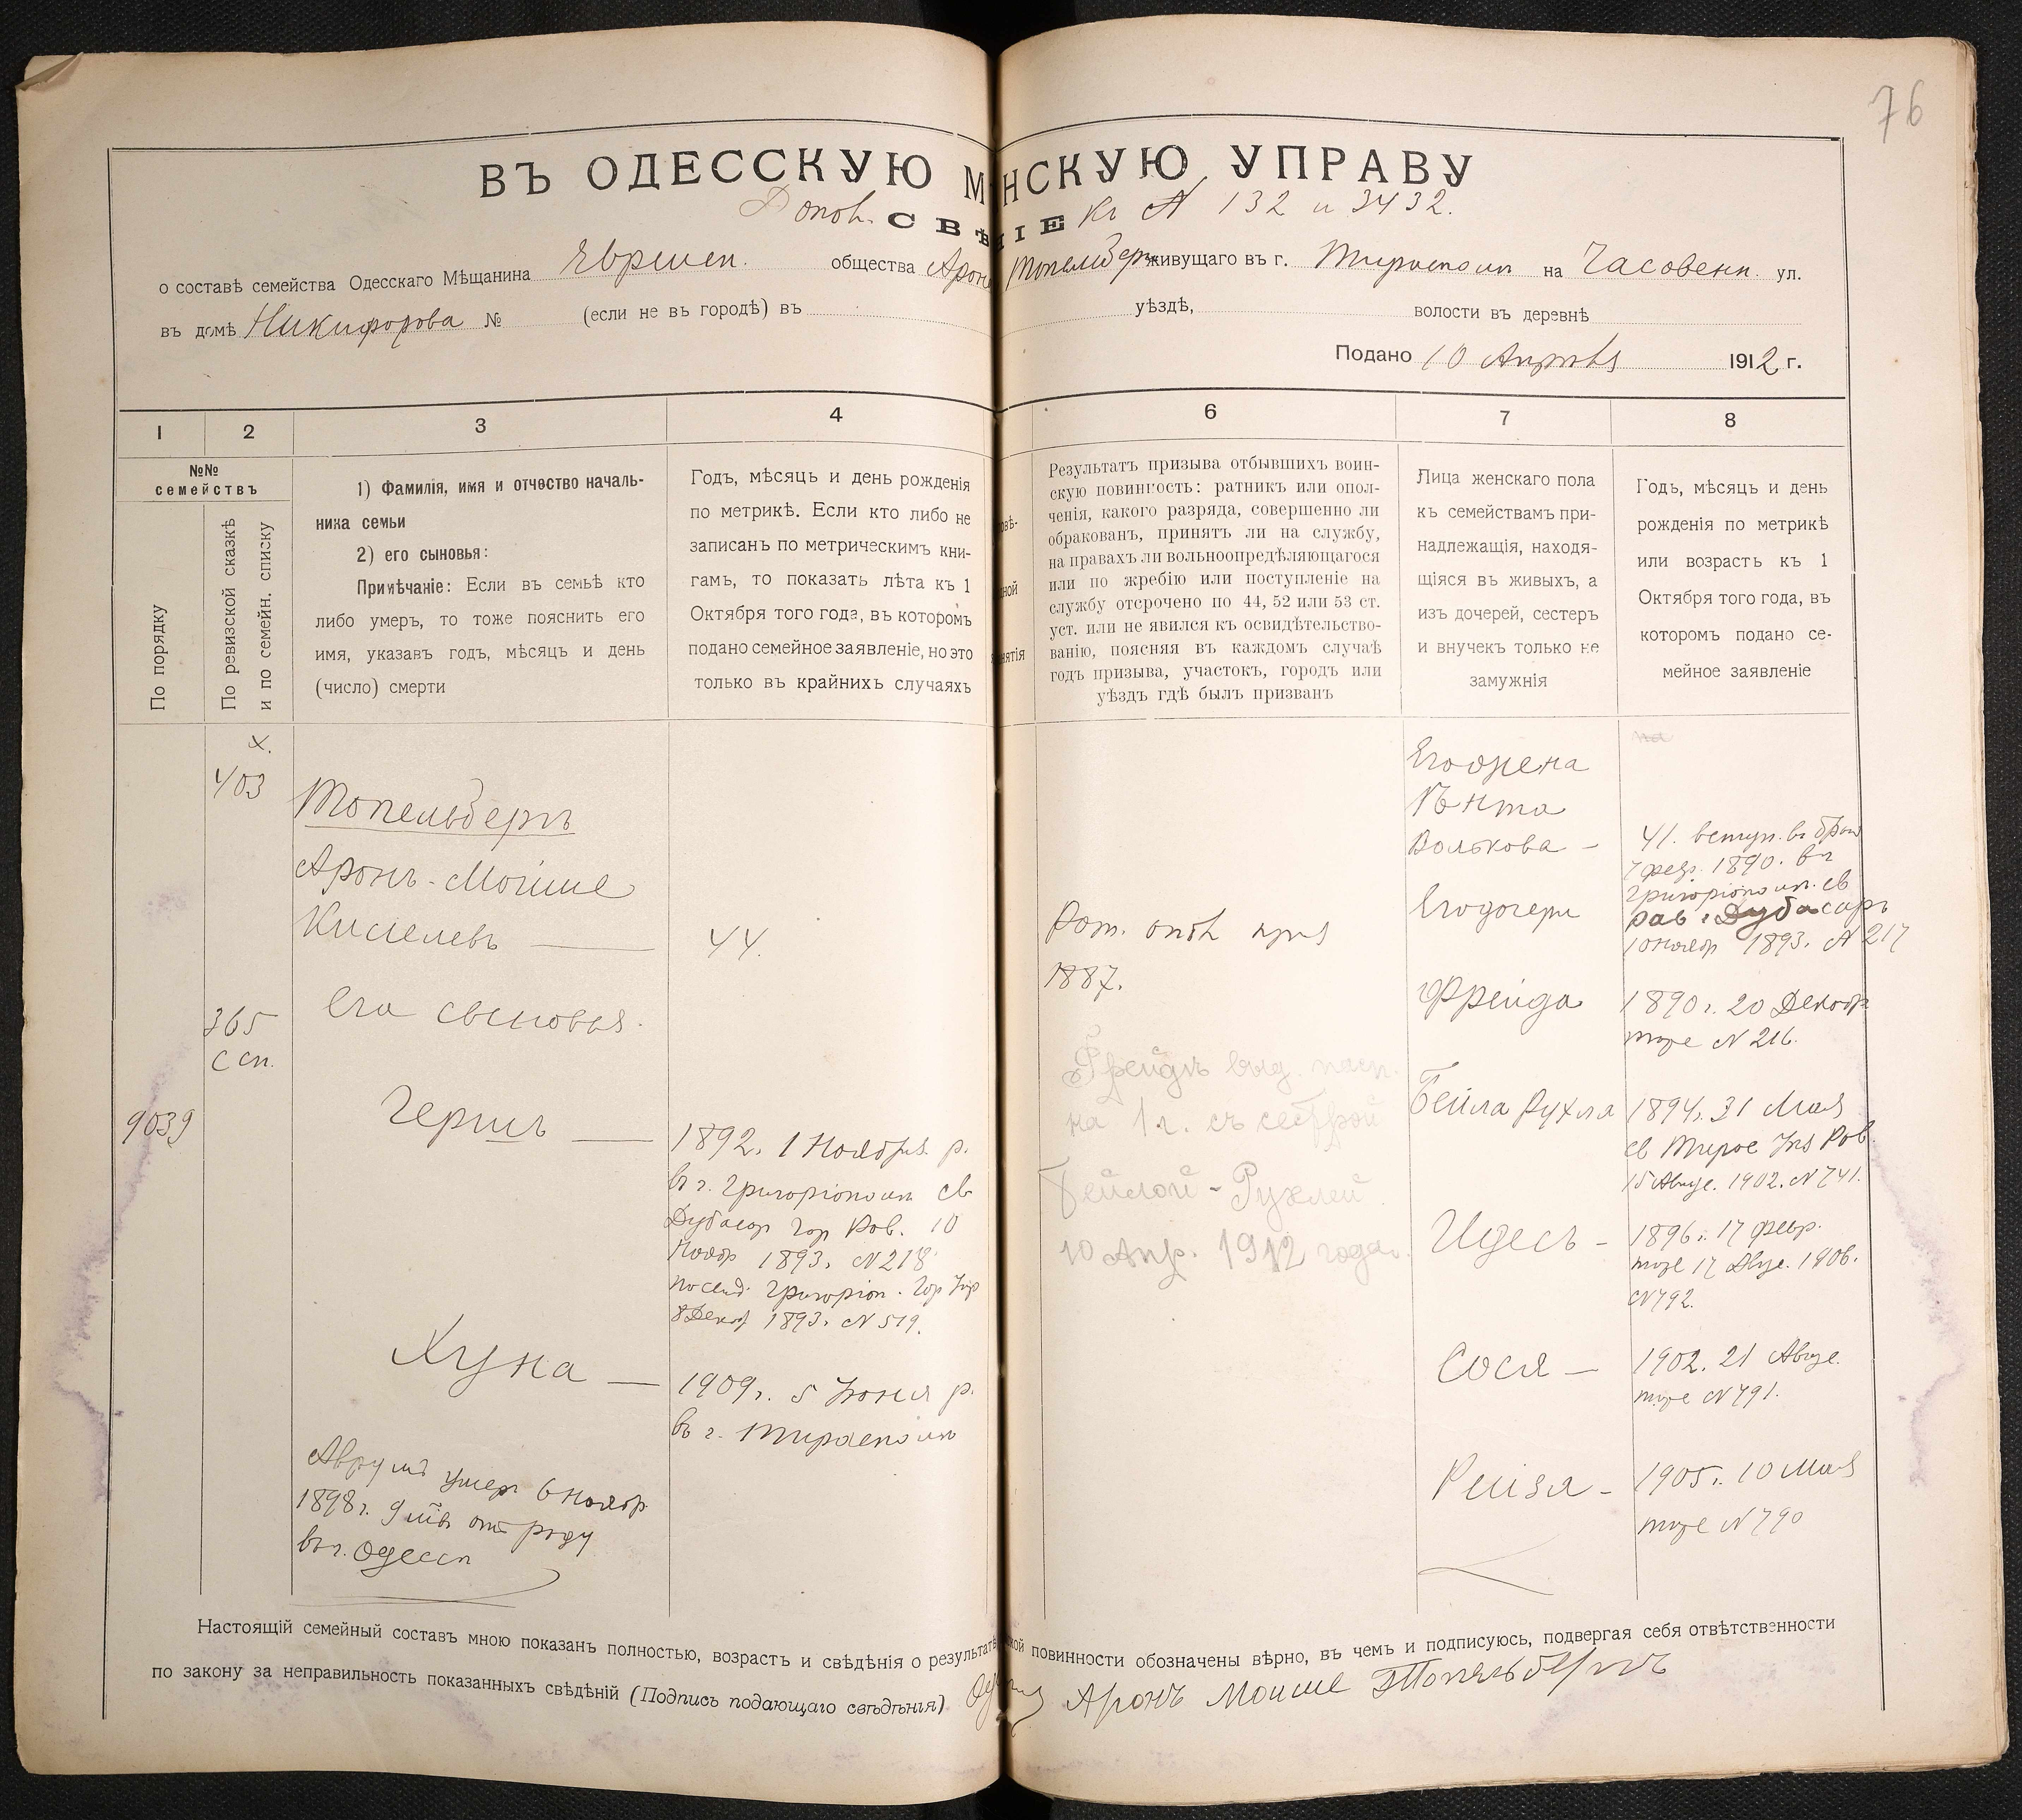 76
ВЪ ОДЕССКУЮ М НСКУЮ УПРАВУ
Допол. СВѢ НІЕ къ № 132 и 3432.
о составѣ семейства Одесскаго Мѣщанина Евриеп. общества Арона Топельберг живущаго въ г. Тирасполп на Часовенн. ул.
въ домѣ Никифорова № (если не въ городѣ) въ уѣздѣ, волости въ деревнѣ
Подано 10 Апрѣля 1912 г.
1 2 3 4 6 7 8
№№
семействъ
По порядку
По ревизской сказкѣ
и по семейн. списку
1) Фамилія, имя и отчество началь-
ника семьи
2) его сыновья:
Примѣчаніе: Если въ семьѣ кто
либо умеръ, то тоже пояснить его
имя, указавъ годъ, мѣсяцъ и день
(число) смерти
Годъ, мѣсяцъ и день рожденія
по метрикѣ. Если кто либо не
записанъ по метрическимъ кни-
гамъ, то показать лѣта къ 1
Октября того года, въ которомъ
подано семейное заявленіе, но это
только въ крайнихъ случаяхъ
Результатъ призыва отбывшихъ воин-
скую повинность: ратникъ или опол-
ченія, какого разряда, совершенно ли
обракованъ, принятъ ли на службу,
на правахъ ли вольноопредѣляющагося
или по жребію или поступленіе на
службу отсрочено по 44, 52 или 53 ст.
уст. или не явился къ освидѣтельство-
ванію, поясняя въ каждомъ случаѣ
годъ призыва, участокъ, городъ или
уѣздъ гдѣ былъ призванъ
Лица женскаго пола
къ семействамъ при-
надлежащія, находя-
щіяся въ живыхъ, а
изъ дочерей, сестеръ
и внучекъ только не
замужнія
Годъ, мѣсяцъ и день
рожденія по метрикѣ
или возрастъ къ 1
Октября того года, въ
которомъ подано се-
мейное заявленіе
х.
403
365
С сп.
9039
Топельбергъ
Аронъ-Мойше
Киселевъ
Его сыновья.
Гершъ
Хуна
Аврумъ умеръ 6 Ноябр
1898 г. 9 лѣтъ отъ роду
въ г. Одессѣ
44.
1892. 1 Ноября р.
въ г. Григоріополѣ св
Дубасар Гор Рав. 10
Ноябр 1893. №218
посвид. Григоріоп. Гор Упр
8 Декаб 1893. №519.
1909 г. 5 Іюня р.
въ г. Тирасполѣ
Рат. опол приз
1887.
Фрейдѣ выд. пасп.
на 1 г. съ сестрой
Бейлой-Рухлей
10 Апр. 1912 года.
Его жена
Гѣнта
Волькова -
Его дочери
Фрейда
Бейла Рухля
Идесь -
Сося -
Рейзя -
41. вступ. въ брак
7 февр. 1890. въ г
Григоріопол. св
рав г. Дубасаръ
10 ноябр 1893. №217
1890 г. 20 Декабр
тоже №216.
1894 г. 31 Мая
св Тирас Упр Рав.
15 Авгус. 1902. №741.
1896 г. 17 Февр.
тоже 17 Авгус. 1906.
№792.
1902. 21 Авгус.
тоже №791.
1905 г. 10 Мая
тоже №790
Настоящій семейный составъ мною показанъ полностью, возрастъ и свѣдѣнія о результатѣ ской повинности обозначены вѣрно, въ чемъ и подписуюсь, подвергая себя отвѣтственности
по закону за неправильность показанныхъ свѣдѣній (Подпись подающаго свѣдѣнія) Аронъ Моише Топельбергъ